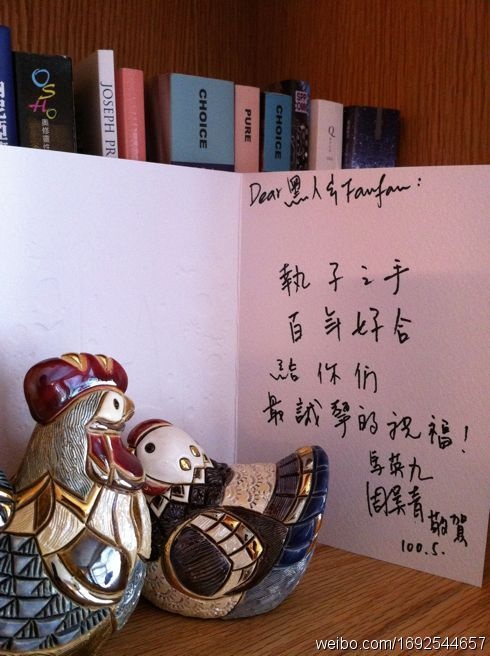 OSHO
JOSEPH PR
CHOICE
PURE
CHOICE
Q
Dear 黑人&Fanfan:
執子之手
百年好合
給你們
最誠摯的祝福!
馬英九
周美青 敬賀
100.5.
weibo.com/1692544657